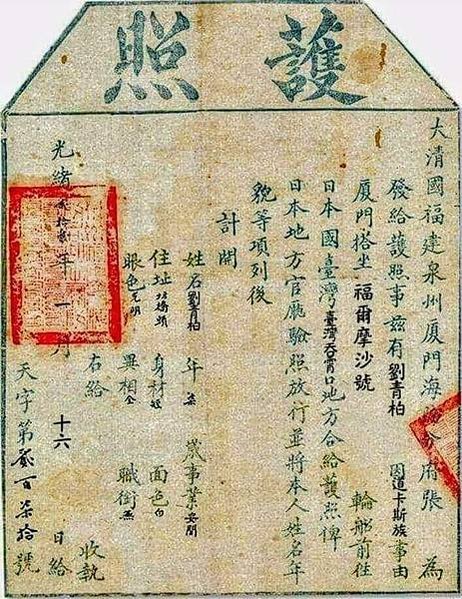 護照
大清國福建泉州厦門海防分府張 為
發給護照事茲有劉青柏 因道卡斯族事由
厦門搭坐福爾摩沙號 輪船前往
日本國臺灣臺灣吞霄口地方合給護照俾
日本地方官廳驗照放行並將本人姓名年
貌等項列後
計開
姓名劉青柏 年 歲事業安閒
住址 身材 面色白
眼色光明 異相全 職銜無
右給 收執
光緒 年一月十六日給
天字第貳百柒拾號